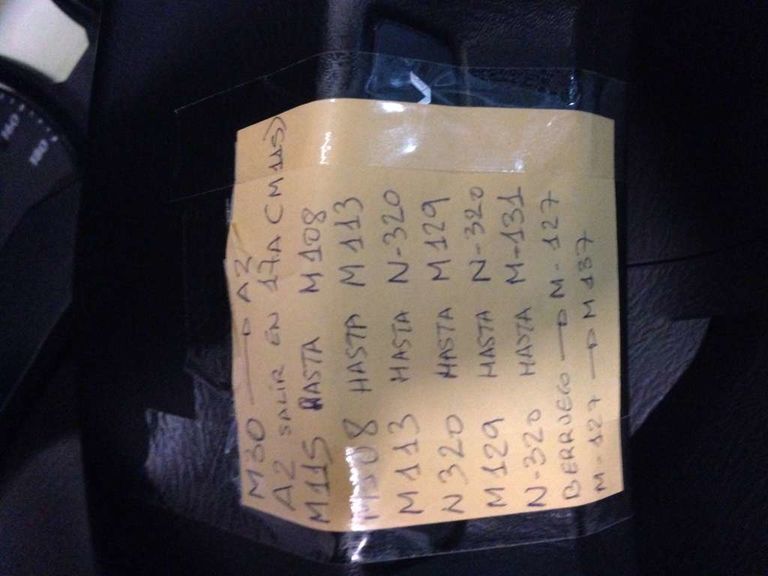 M30 → A2
A2 SALIR EN 17A (M115)
M115 HASTA M108
M108 HASTA M113
M113 HASTA N-320
N320 HASTA M129
M129 HASTA N-320
N-320 HASTA M-131
BERRUECO → M-127
M-127 → M137